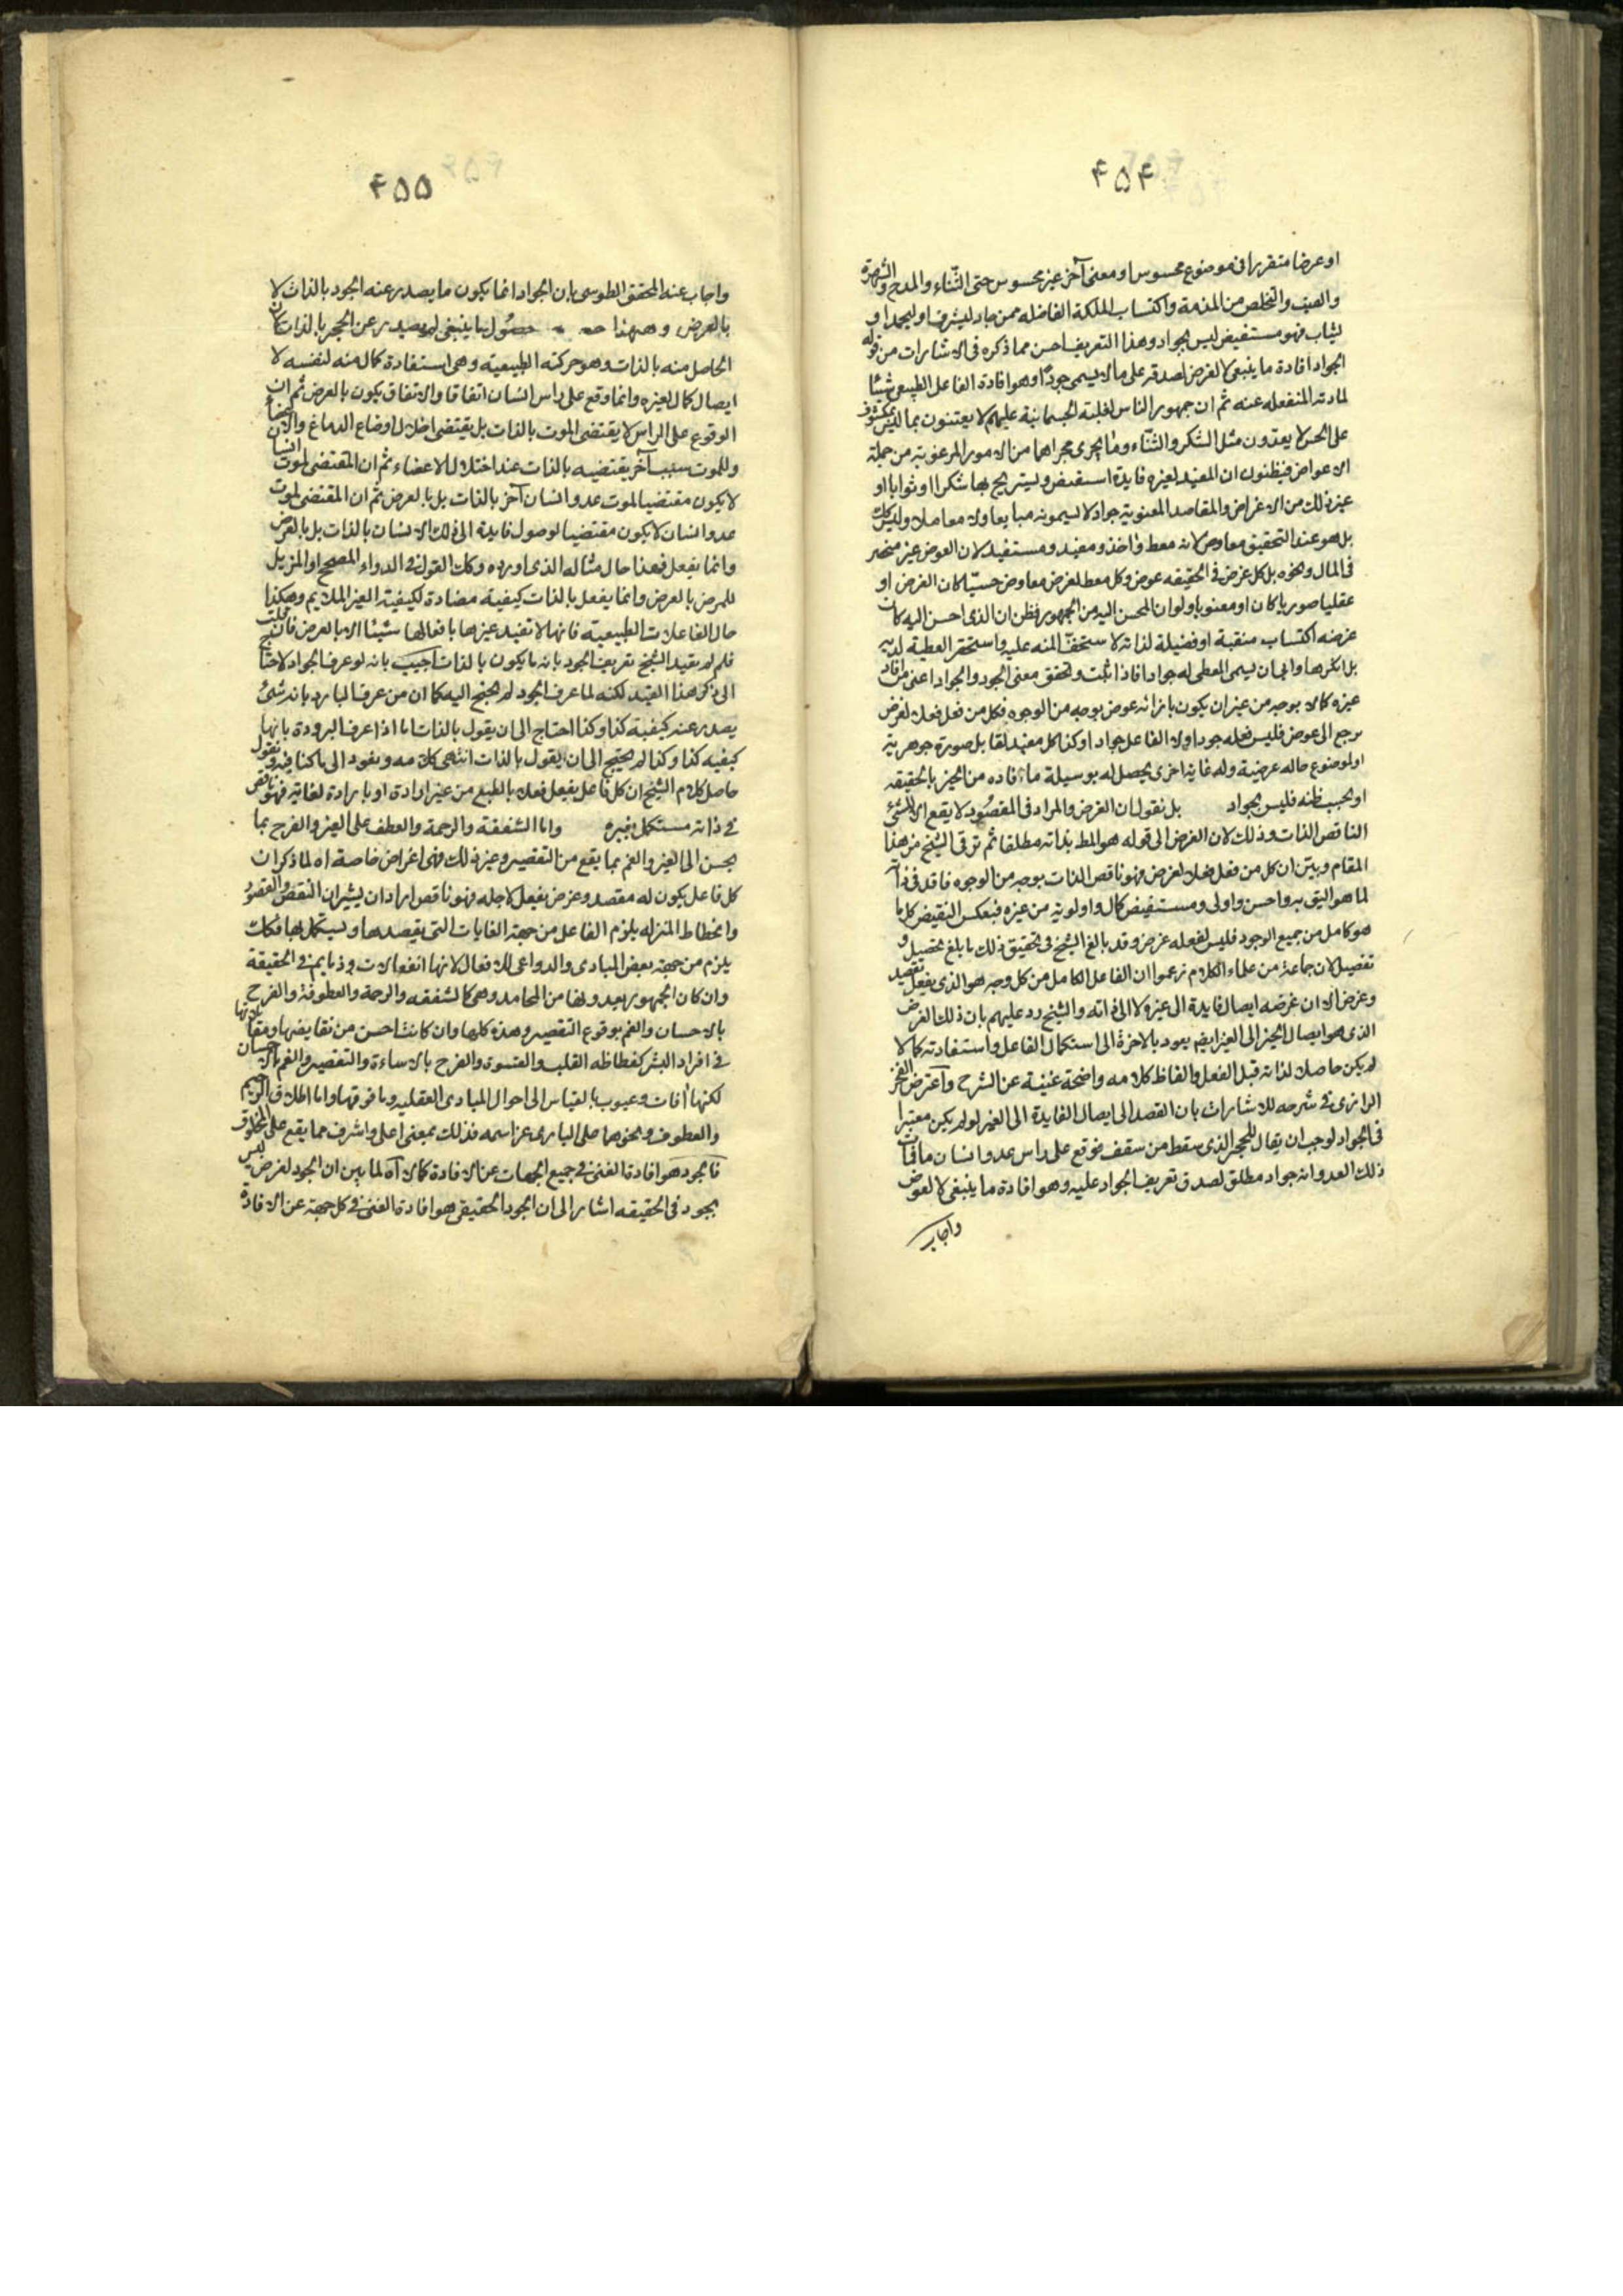 ۴۵۴
او عرضا متقررا فى موضوع محسوس او معنى آخر غير محسوس حتى الثناء والمدح والشهرة
والصيت والتخلص من المذمة واكتساب الملكة الفاضله فمن جاد ليشرف او ليحمد او
ليثاب فهو مستفيض ليس بجواد وهذا التعريف احسن مما ذكره فى الاشارات من قوله
الجود افادة ما ينبغى لا لغرض لصدقه على ما لا يسمى جودًا وهو افادة الفاعل الطبيعى شيئا
لمادته المنفعله عنه ثم ان جمهور الناس لغلبة الجسمانية عليهم لا يعتنون بما ليس بمكشوف
على الحس لا يعدّون مثل الشكر والثناء وما يجرى مجراهما من الامور المرغوبة من جملة
الاعواض فيظنون ان المفيد لغيره فايدة استقيض وليتربح بها شكرا او ثوابا او
غير ذلك من الاغراض والمقاصد المعنوية جواد لا يسمونه مبايعا ولا معاملا وليس كك
بل هو عند التحقيق معاوض لانه معط واخذ ومفيد ومستفيد لان العوض غير منحصر
فى المال ونحوه بل كل غرض فى الحقيقه عوض وكل معط لغرض معاوض حسيّا كان الغرض او
عقليا صوريا كان او معنويا ولو ان المحسن اليه من الجمهور فطن ان الذى احسن اليه كانت
غرضه اكتساب منقبة او فضيلة لذاته لاستخف المنه عليه واستحقر العطية لديه
بل انكرها وابى ان يسمى المعطى له جوادا فاذا ثبت وتحقق معنى الجود والجواد اعنى من افاد
غيره كمالا بوجه من غير ان يكون بازائه عوض بوجه من الوجوه فكل من فعل فعلا لغرض
يرجع الى عوض فليس فعله جودا ولا الفاعل جوادا وكذا كل مفيد لقابل صورة جوهرية
او لموضوع حاله عرضية وله غاية اخرى يحصل له بوسيلة ما افاده من الخير بالحقيقه
او بحسب ظنه فليس بجواد بل نقول ان الغرض والمراد فى المقصود لا يقع الا للشئ
الناقص الذات وذلك لان الغرض الى قوله هو المط بذاته مطلقا ثم ترقى الشيخ من هذا
المقام وبيّن ان كل من فعل فعلا لغرض فهو ناقص الذات بوجه من الوجوه فاقد فى ذاته
لما هو اليق به واحسن واولى ومستفيض كمال واولوية من غيره فبعكس النقيض كل ما
هو كامل من جميع الوجود فليس لفعله غرض وقد بالغ الشيخ فى تحقيق ذلك بابلغ تحصيل و
تفصيل لان جماعة من علماء الكلام زعموا ان الفاعل الكامل من كل وجه هو الذى يفعل بقصد
وغرض الا ان غرضه ايصال فايدة الى غيره لا الى ذاته والشيخ رد عليهم بان ذلك الغرض
الذى هو ايصال الخير الى الغير ايضا يعود بالاخرة الى استكمال الفاعل واستفادته كمالا
لم يكن حاصلا لذاته قبل الفعل والفاظ كلامه واضحة غنية عن الشرح واعترض الفخر
الرازى فى شرحه للاشارات بان القصد الى ايصال الفايدة الى الغير لو لم يكن معتبرا
فى الجواد لوجب ان يقال للحجر الذى سقط من سقف فوقع على راس عدو انسان ما فمات
ذلك العدو انه جواد مطلق لصدق تعريف الجواد عليه وهو افادة ما ينبغى لا لعوض
واجاب
۴۵۵
واجاب عنه المحقق الطوسى بان الجواد انما يكون ما يصدر عنه الجود بالذات لا
بالعرض وههنا حصول ما ينبغى لم يصدر عن الحجر بالذات لان
الحاصل منه بالذات وهو حركته الطبيعية وهى استفادة كمال منه لنفسه لا
ايصال كمال لغيره وانما وقع على راس انسان اتفاقا والاتفاق يكون بالعرض ثم ان
الوقوع على الراس لا يقتضى الموت بالذات بل يقتضى اختلال اوضاع الدماغ والاعضاء
وللموت سبب آخر يقتضيه بالذات عند اختلال الاعضاء ثم ان المقتضى لموت انسان
لا يكون مقتضيا لموت عدو انسان آخر بالذات بل بالعرض ثم ان المقتضى لموت
عدو انسان لا يكون مقتضيا لوصول فايدة الى ذلك الانسان بالذات بل بالعرض
وانما يفعل فهذا حال مثاله الذى اورده وكك القول فى الدواء المصحح او المزيل
للمرض بالعرض وانما يفعل بالذات كيفية مضادة لكيفية الغير الملايم وهكذا
حال الفاعلات الطبيعية فانها لا تفيد غيرها بافعالها شيئا الا بالعرض فان قلت
فلم لم يقيد الشيخ تعريف الجود بانه ما يكون بالذات اجيب بانه لو عرف الجواد لاحتاج
الى ذكر هذا القيد لكنه لما عرف الجود لم يحتج اليه كما ان من عرف البارد بانه شئ
يصدر عنه كيفية كذا وكذا احتاج الى ان يقول بالذات اما اذا عرف البرودة بانها
كيفيه كذا وكذا لم يحتج الى ان يقول بالذات انتهى كلامه ونعود الى ما كنا فيه ونقول
حاصل كلام الشيخ ان كل فاعل يفعل فعلا بالطبع من غير ارادة او بارادة لغاية فهو ناقص
فى ذاته مستكمل بغيره واما الشفقة والرحمة والعطف على الغير والفرح بما
يحسن الى الغير والغم بما يقع من التقصير وغير ذلك فهى اغراض خاصة اه لما ذكر ان
كل فاعل يكون له مقصد وغرض يفعل لاجله فهو ناقص اراد ان يشير ان النقص والقصور
وانحطاط المنزله يلزم الفاعل من جهة الغايات التى يقصدها ويستكمل بها فكك
يلزم من جهة بعض المبادى والدواعى للافعال لانها انفعالات وذمايم فى الحقيقة
وان كان الجمهور يعدونها من المحامد وهى كالشفقه والرحمة والعطوفة والفرح
بالاحسان والغم بوقوع التقصير وهذه كلها وان كانت احسن من نقايضها ومقابلاتها
فى افراد البشر كفظاظه القلب والقسوة والفرح بالاساءة والتقصير والغم بالاحسان
لكنها آفات وعيوب بالقياس الى احوال المبادى العقليه وما فوقها واما اطلاق الرحيم
والعطوف ونحوهما على البارى عز اسمه فذلك بمعنى اعلى واشرف مما يقع على المخلوق
فالجود هو افادة الغنى فى جميع الجهات عن الافادة كمالا اه لما بين ان الجود لغرض ليس
بجود فى الحقيقه اشار الى ان الجود الحقيقى هو افادة الغنى فى كل جهة عن الافادة